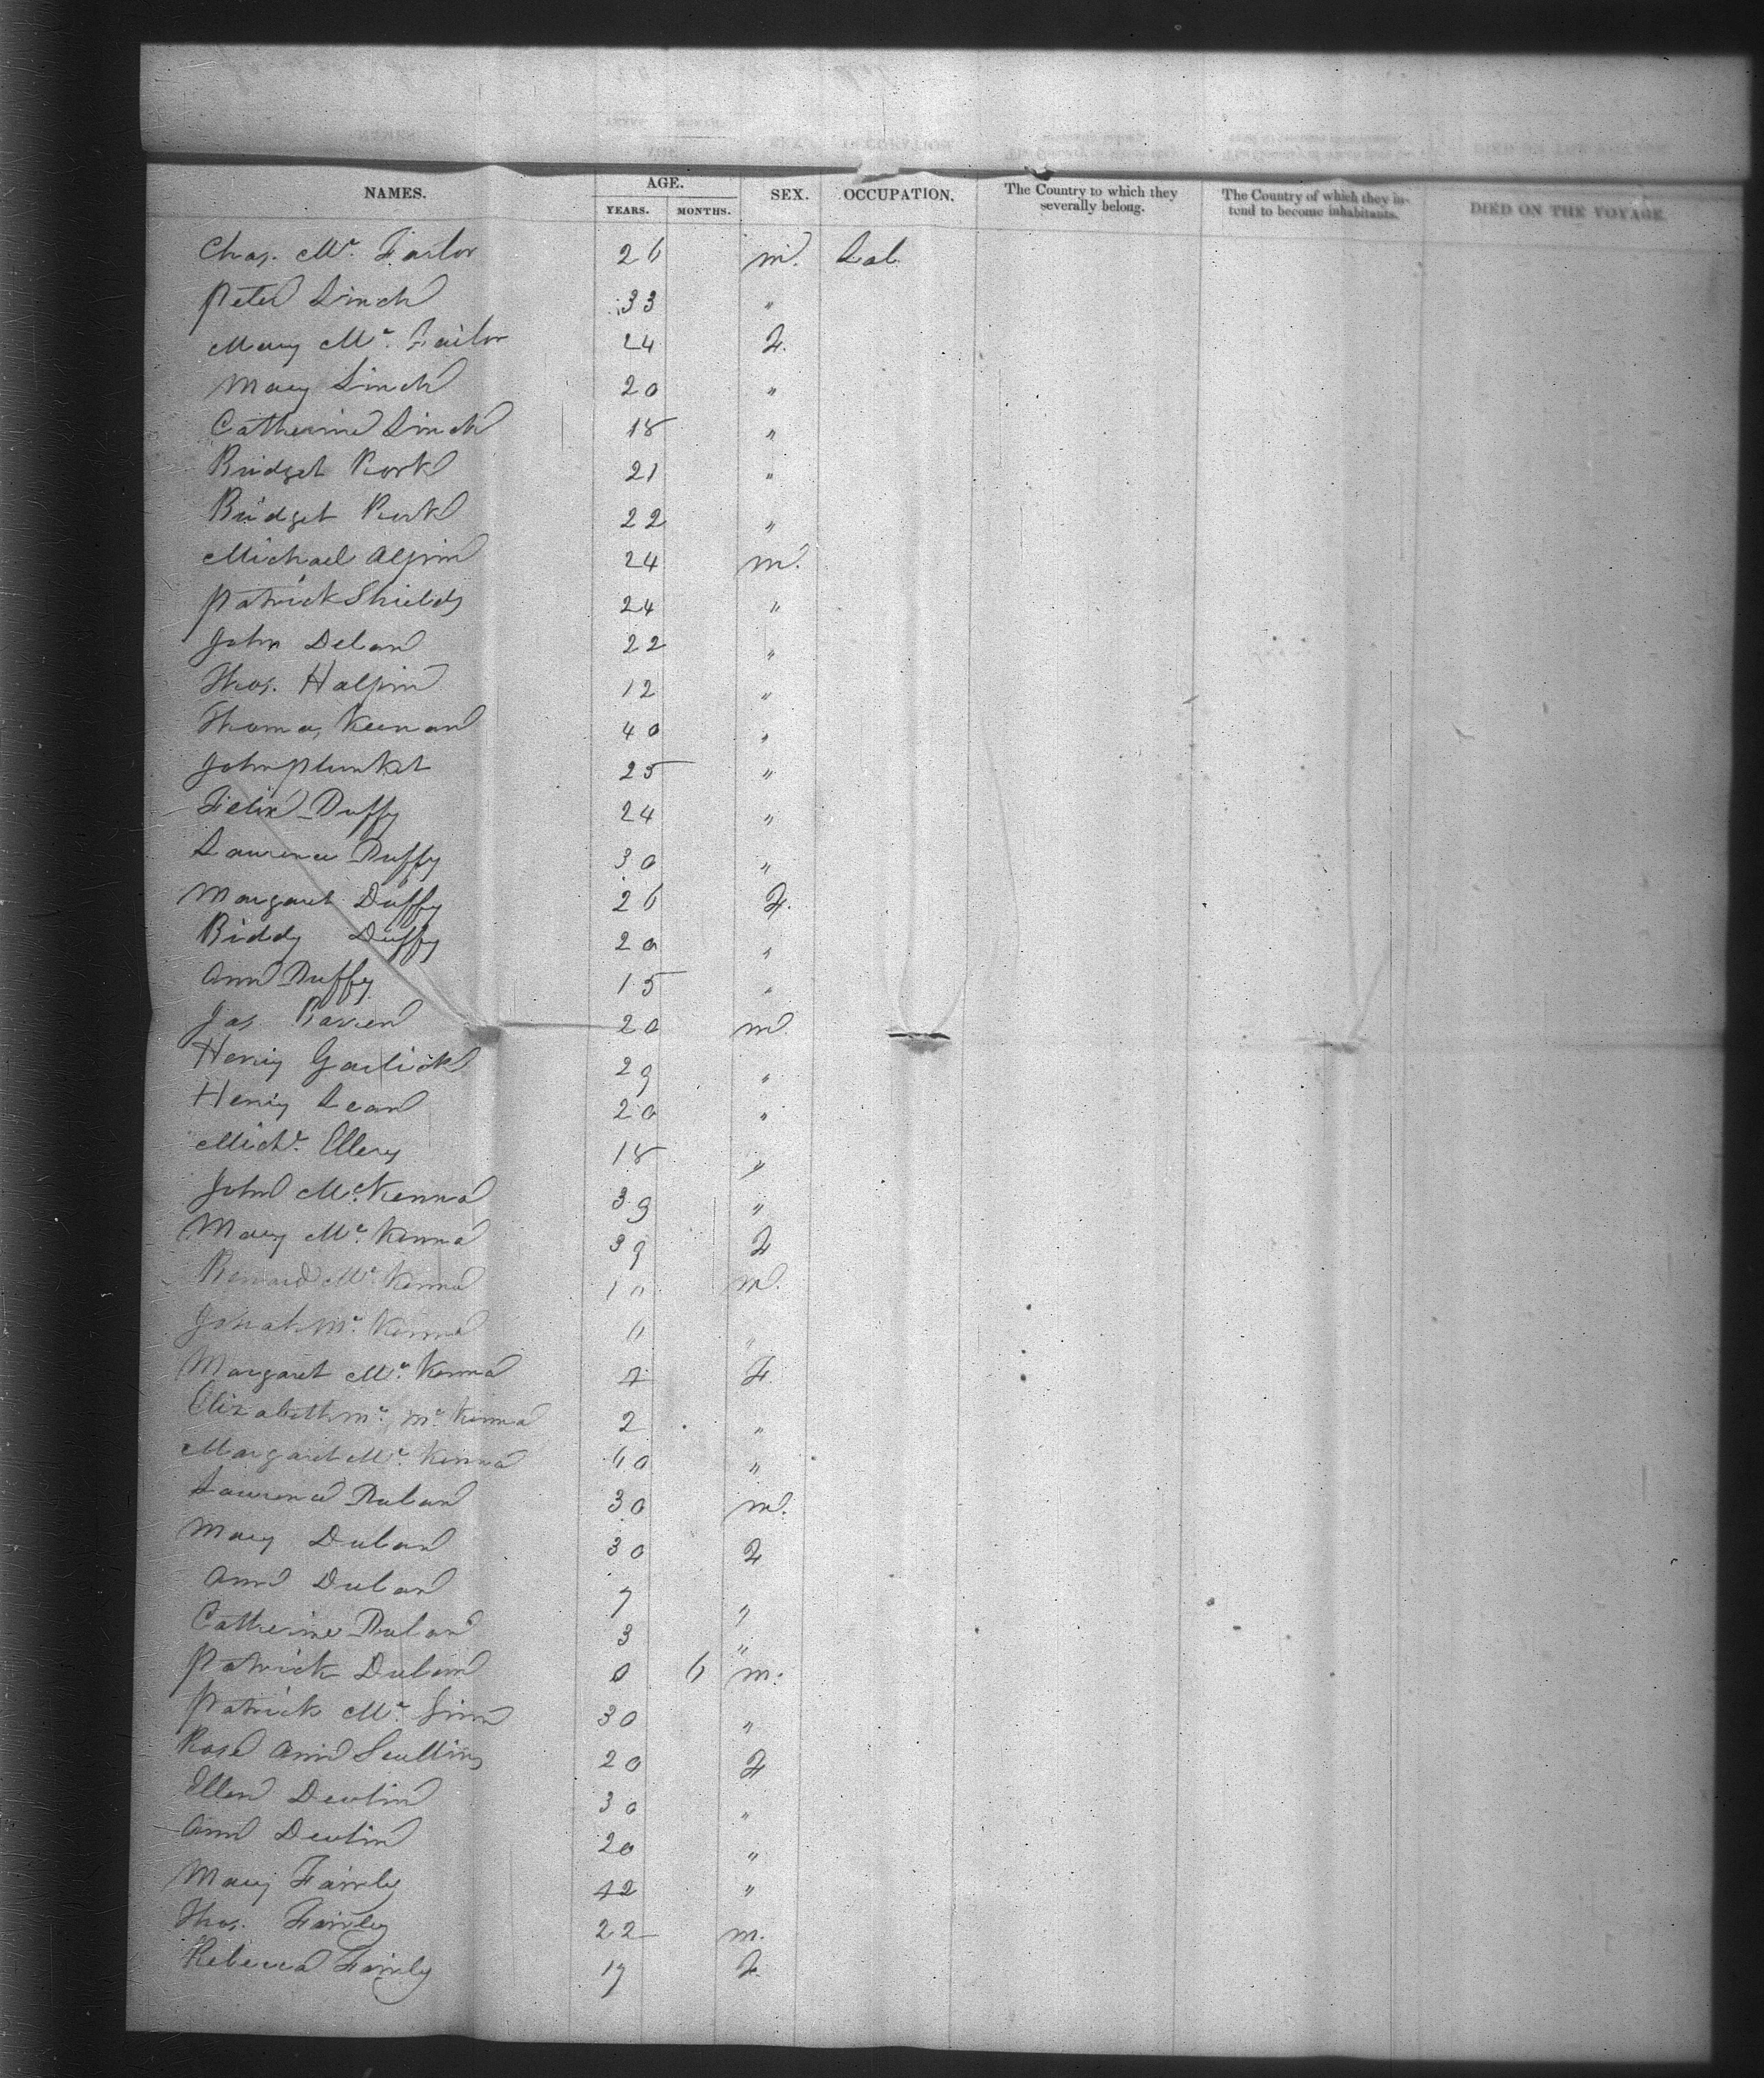 NAMES. AGE. YEARS. MONTHS. SEX. OCCUPATION. The Country to which they severally belong. The Country of which they intend to become inhabitants. DIED ON THE VOYAGE.
Chas. Mc. Failor 26 m. Lab.
Peter Linch 33 "
Mary Mc. Failor 24 F.
Mary Linch 20 "
Catherine Linch 18 "
Bridget Rork 21 "
Bridget Rork 22 "
Michael Alpin 24 m.
Patrick Shields 24 "
John Delan 22 "
Thos. Halpin 12 "
Thomas Keenan 40 "
John Plunket 25 "
Felix Duffy 24 "
Laurence Duffy 30 "
Margaret Duffy 26 F.
Biddy Duffy 20 "
Ann Duffy 15 "
Jas 20 m.
Henry Garlick 29 "
Henry Lean 20 "
Michl. Ellery 18 "
John Mc. Kenna 39 "
Mary Mc. Kenna 39 F
Bernard Mc. Kenna 11 m.
Mc. Kenna "
Margaret Mc. Kenna F.
Elizabeth Mc. Mc. Kenna 2 "
Margaret Mc. Kenna 60 "
Laurence Dulan 30 m.
Mary Dulan 30 F
Ann Dulan 7 "
Catherine Dulan 3 "
Patrick Dulan 0 6 m.
Patrick Mc. 30 "
Rose Ann Scullin 20 F
Ellen Devlin 30 "
Ann Devlin 20 "
Mary Fairly 42 "
Thos. Fairley 22 m.
Rebecca Fairly 17 F.